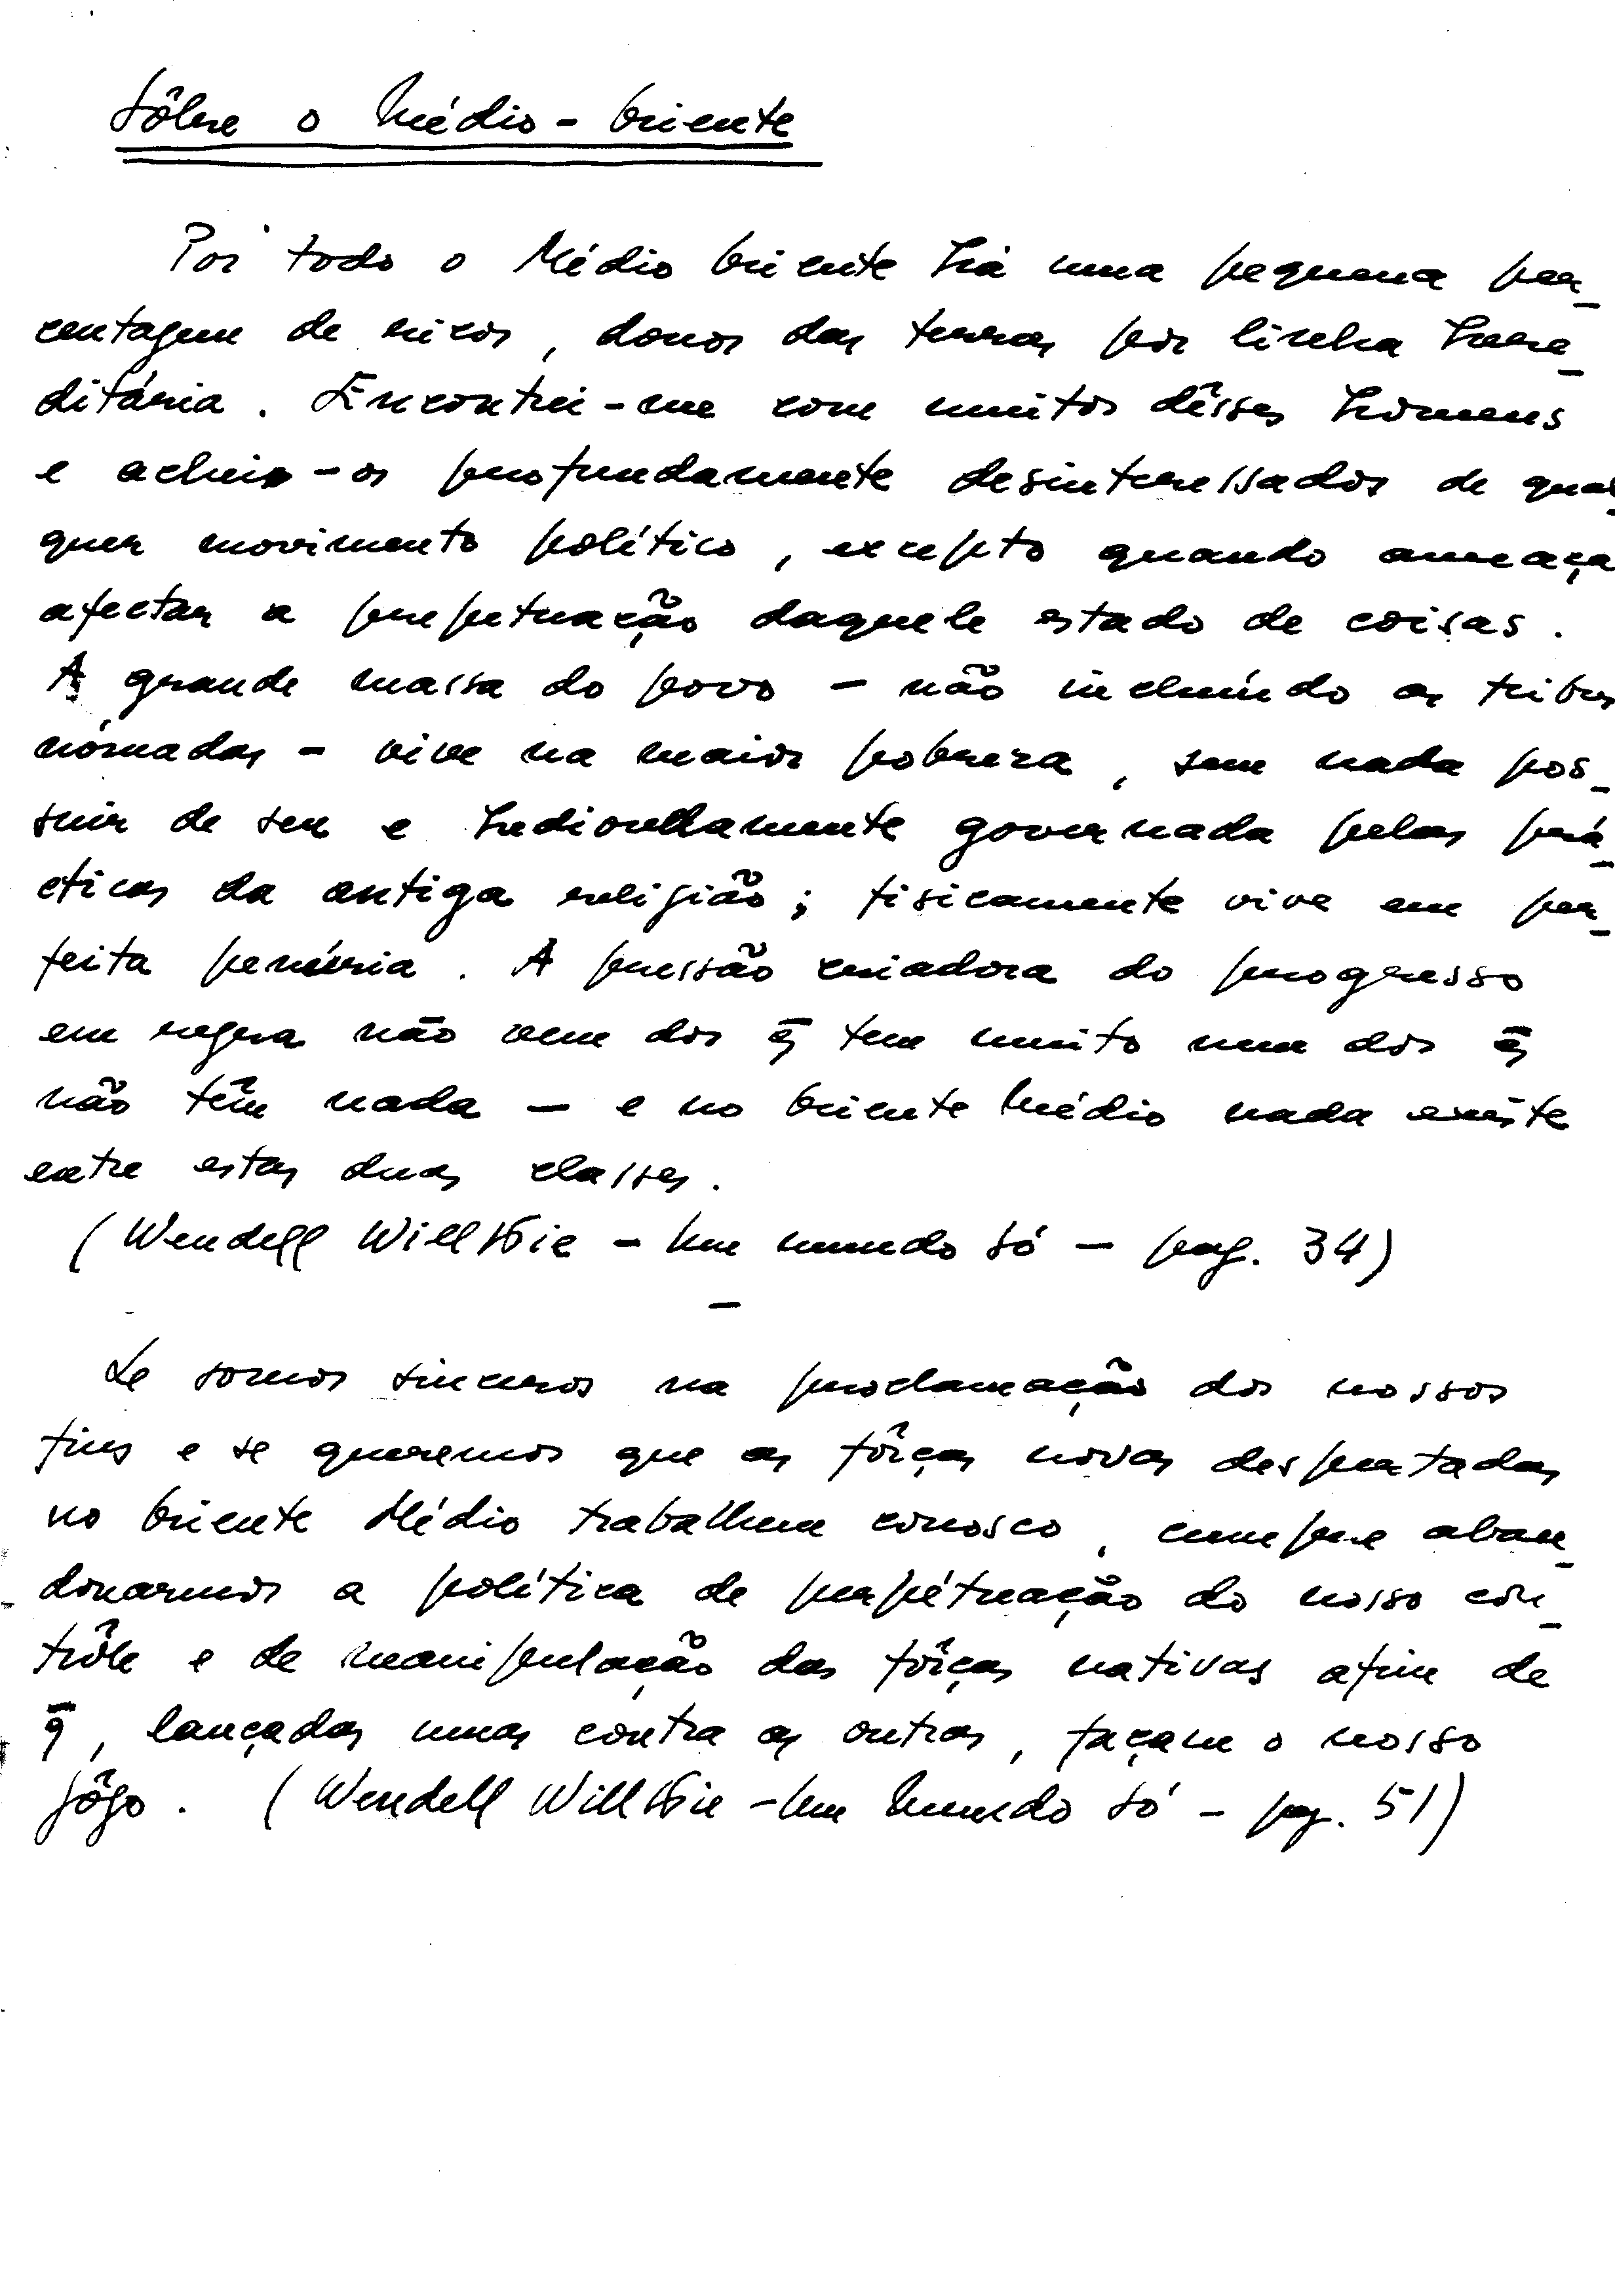 Sôbre o Médio-Oriente
Por todo o Médio Oriente há uma pequena per_
centagem de ricos, donos das terras por linha here_
ditária. Encontrei-me com muitos dêsses homens
e achei-os profundamente desinteressados de qual_
quer movimento político, excepto quando ameaça
afectar a perpetuação daquele estado de coisas.
A grande massa do povo - não incluíndo as tribus
nómadas - vive na maior pobreza, sem nada pos_
suir de seu e hediondamente governada pelas prá_
cticas da antiga religião; fisicamente vive em per_
feita penúria. A pressão criadora do progresso
em regra não vem dos q̄ tem muito nem dos q̄
não têm nada — e no Oriente Médio nada existe
entre estas duas classes.
(Wendell Willkie - Um mundo só - pag. 34)
—
Se somos sinceros na proclamação dos nossos
fins e se queremos que as fôrças novas despertadas
no Oriente Médio trabalhem conosco, cumpre aban_
donarmos a política de perpétuação do nosso con_
trôle e de manipulação das fôrças nativas afim de
q̄, lançadas umas contra as outras, façam o nosso
jôgo. (Wendell Willkie - Um Mundo só - pag. 51)